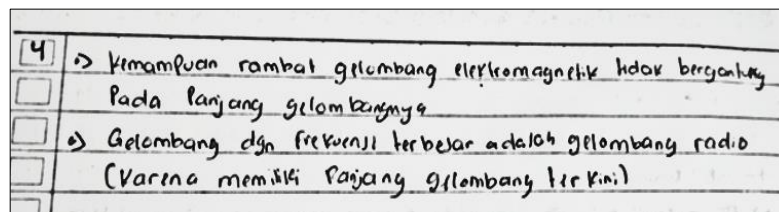 4 •> Kemampuan rambat gelombang elektromagnetik tidak bergantung
Pada Panjang gelombangnya
•> Gelombang dgn frekuensi terbesar adalah gelombang radio
(Karena memiliki Panjang gelombang terkini)